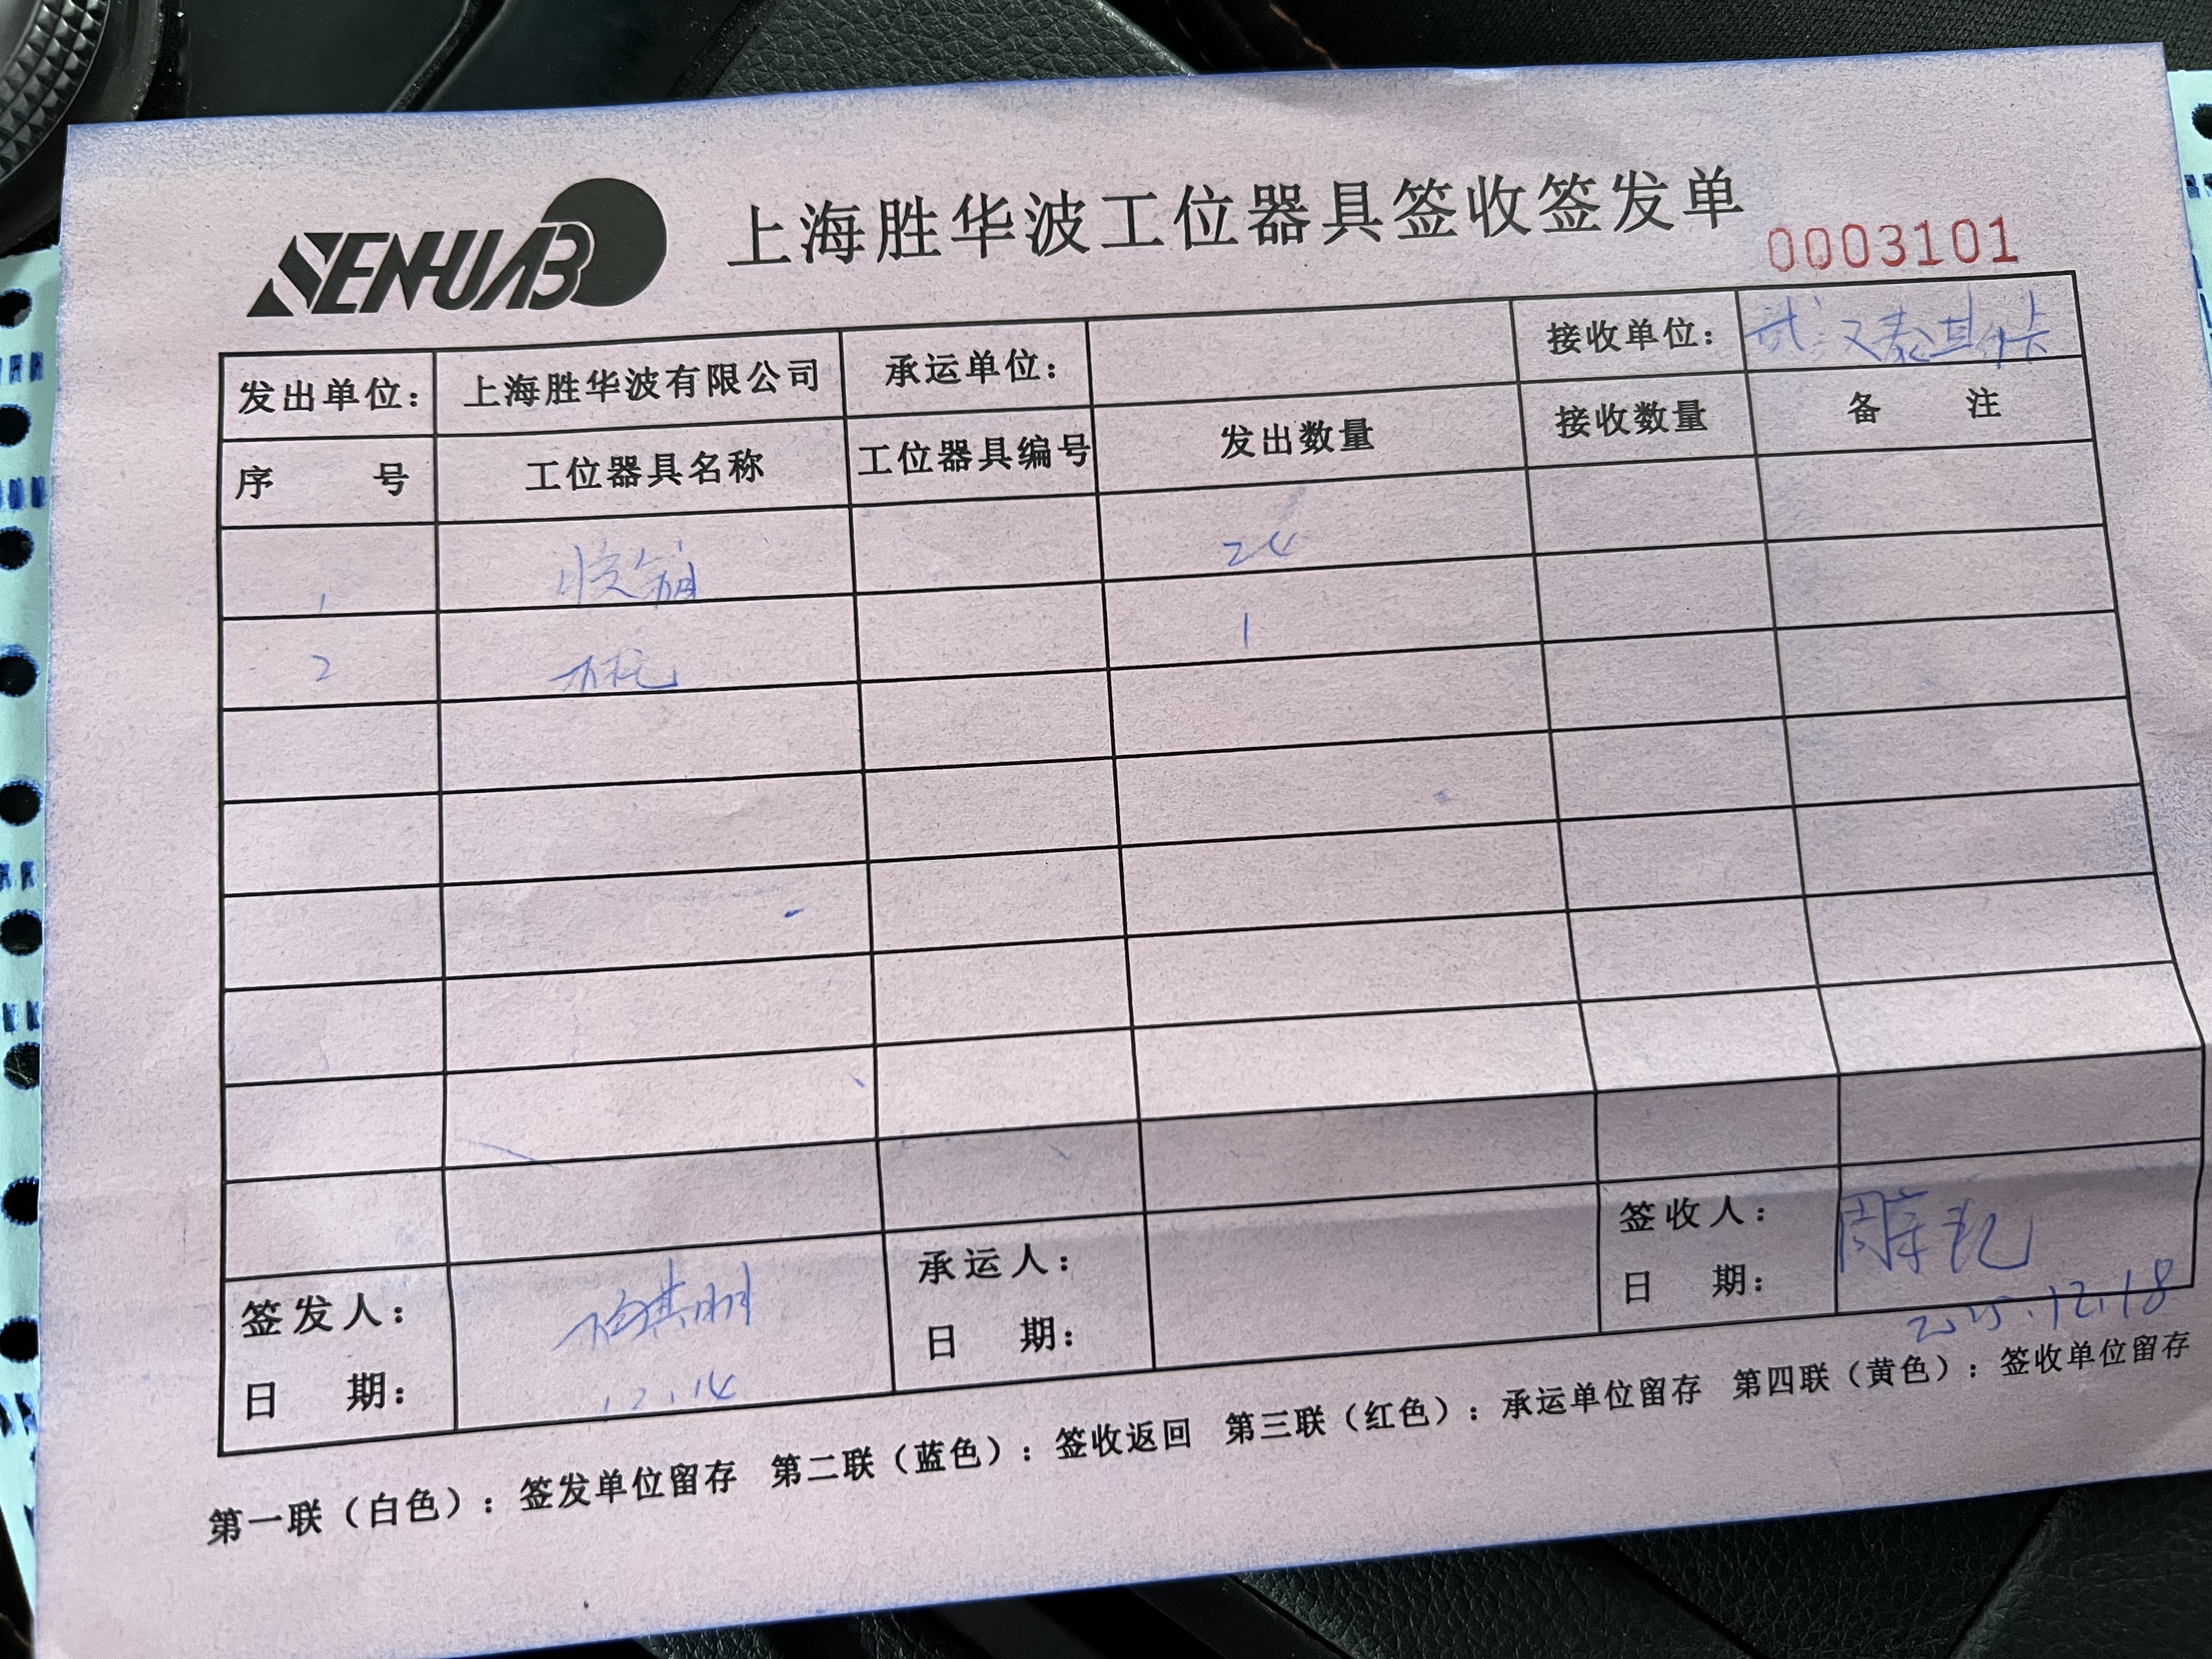 SENHUAB 上海胜华波工位器具签收签发单
0003101
发出单位: 上海胜华波有限公司 承运单位: 接收单位: 武汉泰其卡
序 号 工位器具名称 工位器具编号 发出数量 接收数量 备 注
1 胶箱 24
2 木托 1
签发人: 承运人: 签收人:
日 期: 12.14 日 期: 日 期: 2025.12.18
第一联（白色）：签发单位留存 第二联（蓝色）：签收返回 第三联（红色）：承运单位留存 第四联（黄色）：签收单位留存